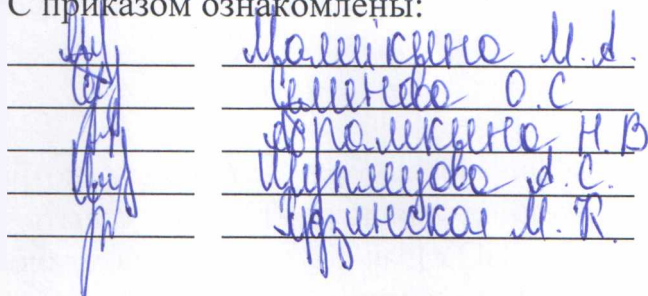 С приказом ознакомлены:
Малийкина М.А.
Семенова О.С
Абрамкина Н.В
Шуплецова А.С.
Гузинская М.К.